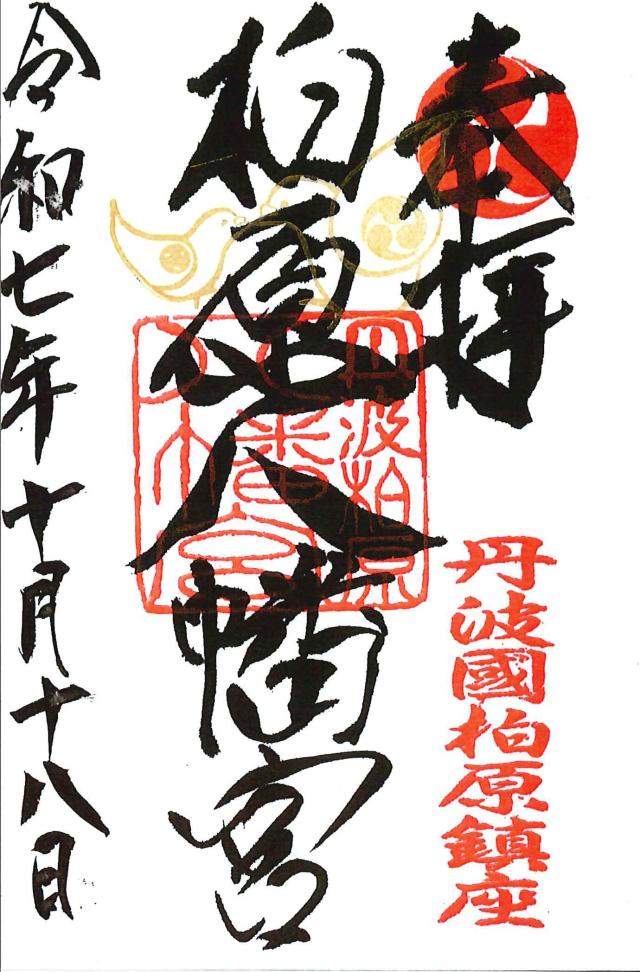 奉拝
丹波國柏原鎮座
柏原八幡宮
丹波柏原
八幡宮
令和七年十月十八日